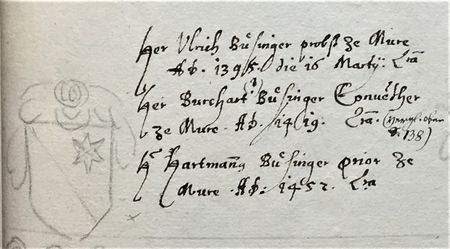 Her Ulrich Büsinger probst ze Mure
Aō. 1395. die 16 Martij. Lra
Her Burchart Büsinger Conuether
ze Mure. Aō. 1419. Lra. (
S. 138)
Hr Hartmann Büsinger prior ze
Mure. Aō. 1452. Lra